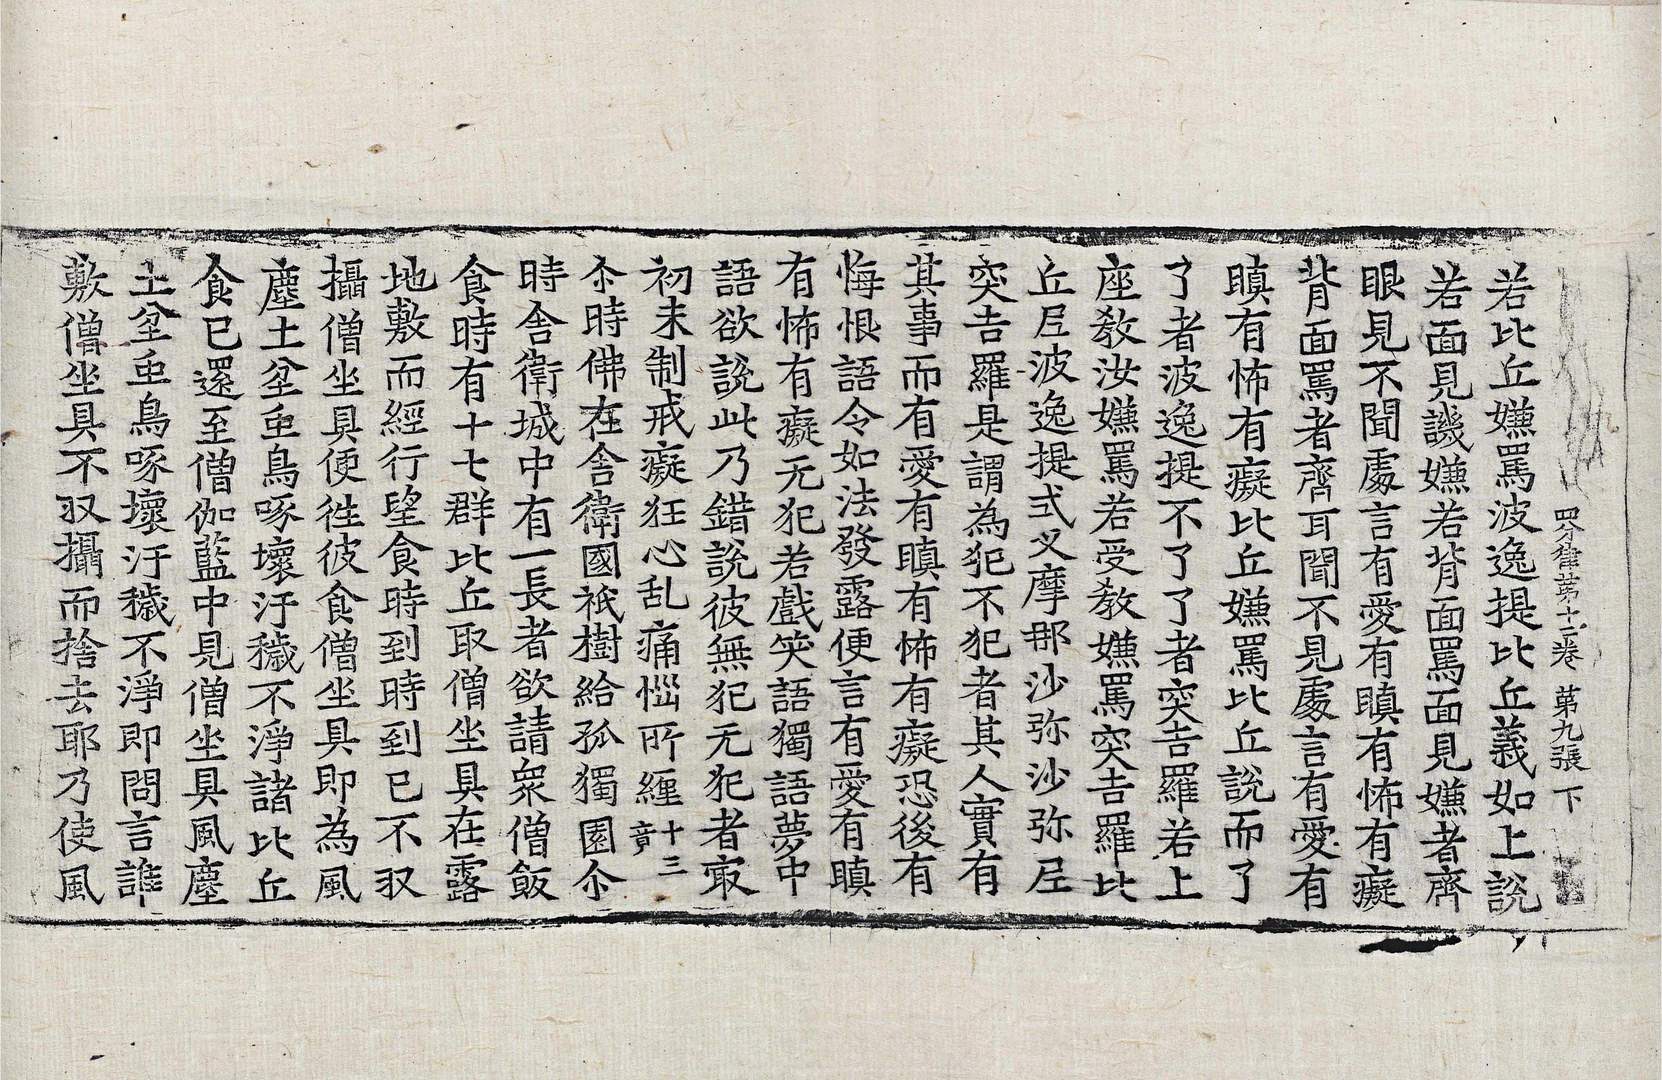 四分律第十二卷 第九張 下
若比丘嫌罵波逸提比丘義如上說
若面見譏嫌若背面罵面見嫌者齊
眼見不聞處言有愛有瞋有怖有癡
背面罵者齊耳聞不見處言有愛有
瞋有怖有癡比丘嫌罵比丘說而了
了者波逸提不了了者突吉羅若上
座教汝嫌罵若受教嫌罵突吉羅比
丘尼波逸提式叉摩那沙弥沙弥尼
突吉羅是謂為犯不犯者其人實有
其事而有愛有瞋有怖有癡恐後有
悔恨語令如法發露便言有愛有瞋
有怖有癡无犯若戲笑語獨語夢中
語欲說此乃錯說彼無犯无犯者㝡
初未制戒癡狂心乱痛惱所纏十三竟
尒時佛在舍衛國祇樹給孤獨園尒
時舍衛城中有一長者欲請衆僧飯
食時有十七群比丘取僧坐具在露
地敷而經行望食時到時到已不収
攝僧坐具便徃彼食僧坐具即為風
塵土坌虫鳥啄壞汙穢不淨諸比丘
食已還至僧伽藍中見僧坐具風塵
土坌虫鳥啄壞汙穢不淨即問言誰
敷僧坐具不収攝而捨去耶乃使風